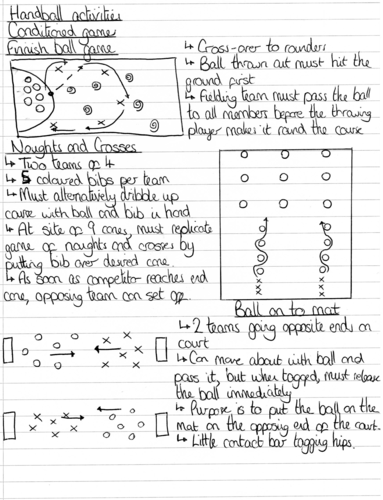 Handball activities
Conditioned games
Finnish ball game
↳ Cross-over to rounders
↳ Ball thrown out must hit the
ground first
↳ Fielding team must pass the ball
to all members before the throwing
player makes it round the course
Noughts and Crosses
↳ Two teams of 4
↳ 5 coloured bibs per team
↳ Must alternatively dribble up
course with ball and bib in hand
↳ At site of 9 cones, must replicate
game of noughts and crosses by
putting bib over desired cone.
↳ As soon as competitor reaches end
cone, opposing team can set of.
Ball on to mat
↳ 2 teams going opposite ends on
court
↳ Can move about with ball and
pass it, but when tagged, must release
the ball immediately
↳ Purpose is to put the ball on the
mat on the opposing end of the court.
↳ Little contact bar tagging hips.